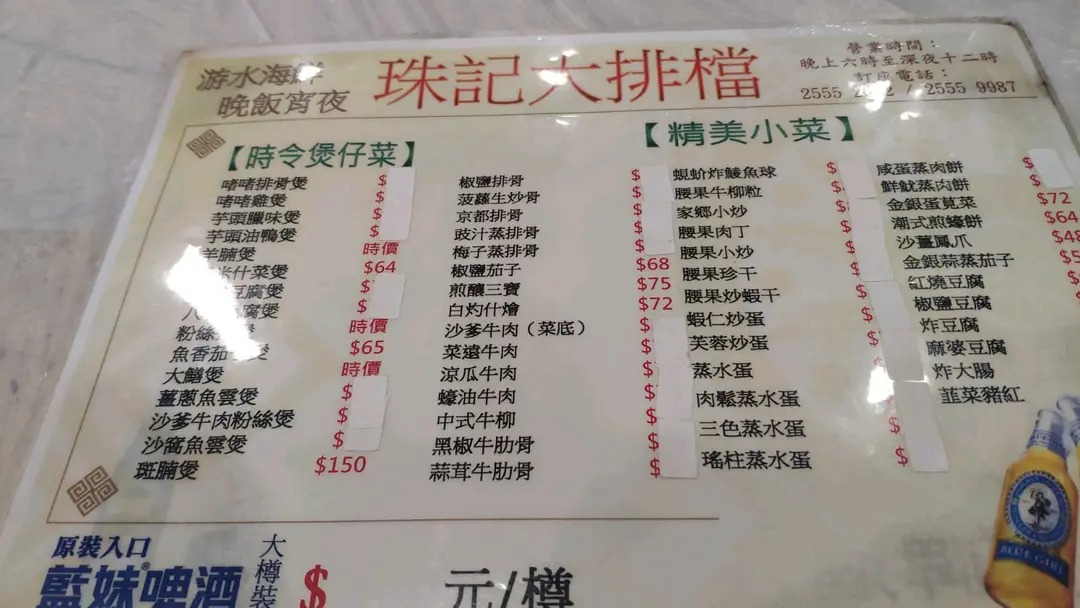 游水海鮮
晚飯宵夜
珠記大排檔
營業時間：
晚上六時至深夜十二時
訂座電話：
2555 / 2555 9987
【時令煲仔菜】
啫啫排骨煲 $
啫啫雞煲 $
芋頭臘味煲 $
芋頭油鴨煲 $
羊腩煲 時價
什菜煲 $64
豆腐煲 $
腐煲 $
粉絲 煲 時價
魚香茄 煲 $65
大鱔煲 時價
薑蔥魚雲煲 $
沙爹牛肉粉絲煲 $
沙窩魚雲煲 $
斑腩煲 $150
【精美小菜】
椒鹽排骨 $
菠蘿生炒骨 $
京都排骨 $
豉汁蒸排骨 $
梅子蒸排骨 $
椒鹽茄子 $68
煎釀三寶 $75
白灼什燴 $72
沙爹牛肉（菜底） $
菜遠牛肉 $
涼瓜牛肉 $
蠔油牛肉 $
中式牛柳 $
黑椒牛肋骨 $
蒜茸牛肋骨 $
蜆蚧炸鯪魚球 $
腰果牛柳粒 $
家鄉小炒 $
腰果肉丁 $
腰果小炒 $
腰果珍干 $
腰果炒蝦干 $
蝦仁炒蛋 $
芙蓉炒蛋 $
蒸水蛋 $
肉鬆蒸水蛋 $
三色蒸水蛋 $
瑤柱蒸水蛋 $
咸蛋蒸肉餅 $
鮮魷蒸肉餅
金銀蛋莧菜 $72
潮式煎蠔餅 $64
沙薑鳳爪
金銀蒜蒸茄子
紅燒豆腐
椒鹽豆腐
炸豆腐
麻婆豆腐
炸大腸
韮菜豬紅
原裝入口
藍妹®啤酒
大樽裝
$
元/樽
BLUE GIRL